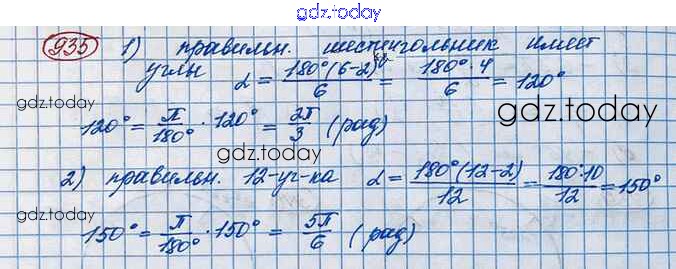 gdz.today
935 1) правильн. шестиугольник имеет
углы α = 180°(6-2)/6 = 180°·4/6 = 120°
gdz.today
gdz.today
120° = π/180° · 120° = 2π/3 (рад)
gdz.today
2) правильн. 12-уг-ка α = 180°(12-2)/12 = 180·10/12 = 150°
gdz.today
150° = π/180° · 150° = 5π/6 (рад)